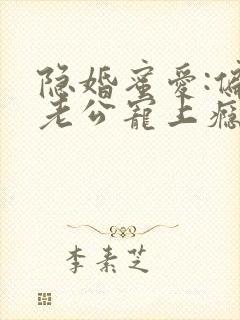 隐婚蜜愛:偏
老公寵上瘾
李素芝